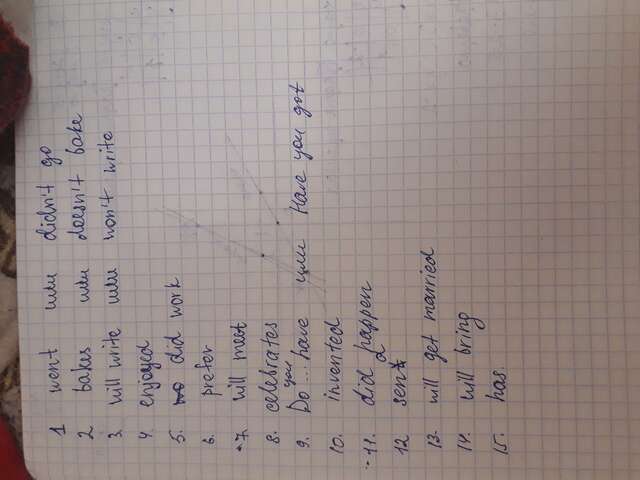 1 went или didn't go
2 bakes или doesn't bake
3. will write или won't write
4. enjoyed
5. did work
6. prefer
7. will meet
8. celebrates
9. Do you ... have или Have you got
10. invented
11. did happen
12 sent
13. will get married
14. will bring
15. has